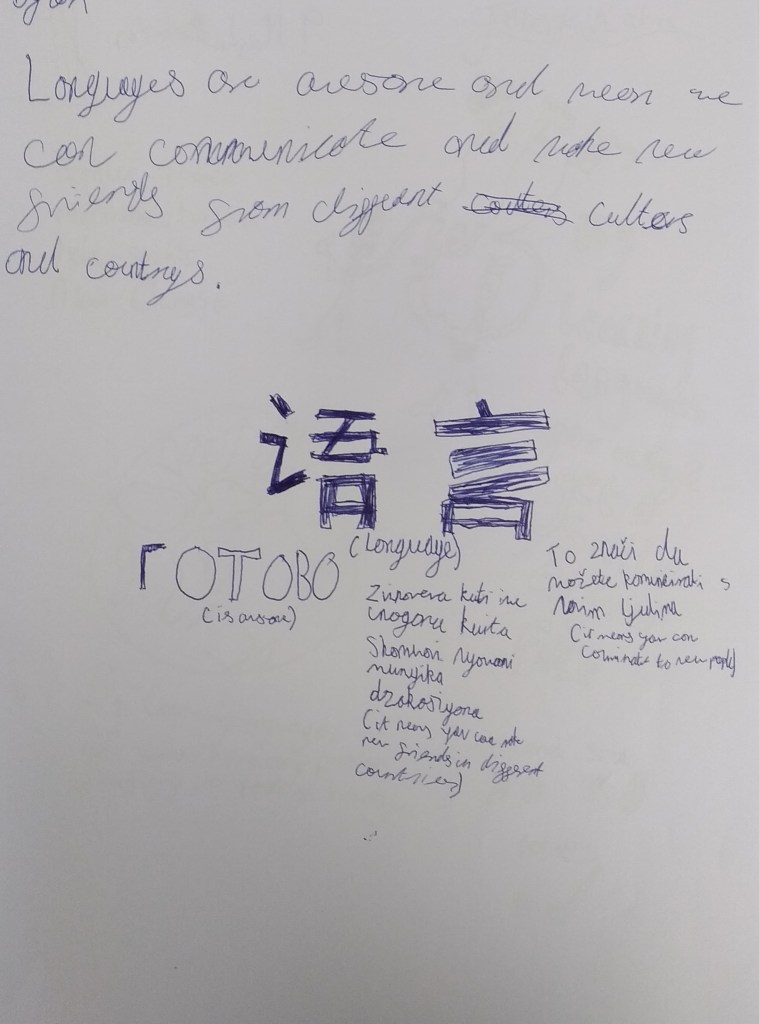 Languages are awesome and mean we
can communicate and make new
friends from different culters
and countrys.
语言
(Language)
ГОТОВО
(is awsome)
Zvinoreva kuti iwe
unogona kuita
Shamwari
munyika
dzakasiyana
(it means you can make
new friends in different
countries)
To znači da
možete komunicirati s
novim ljudima
(it means you can
comunicate to new people)